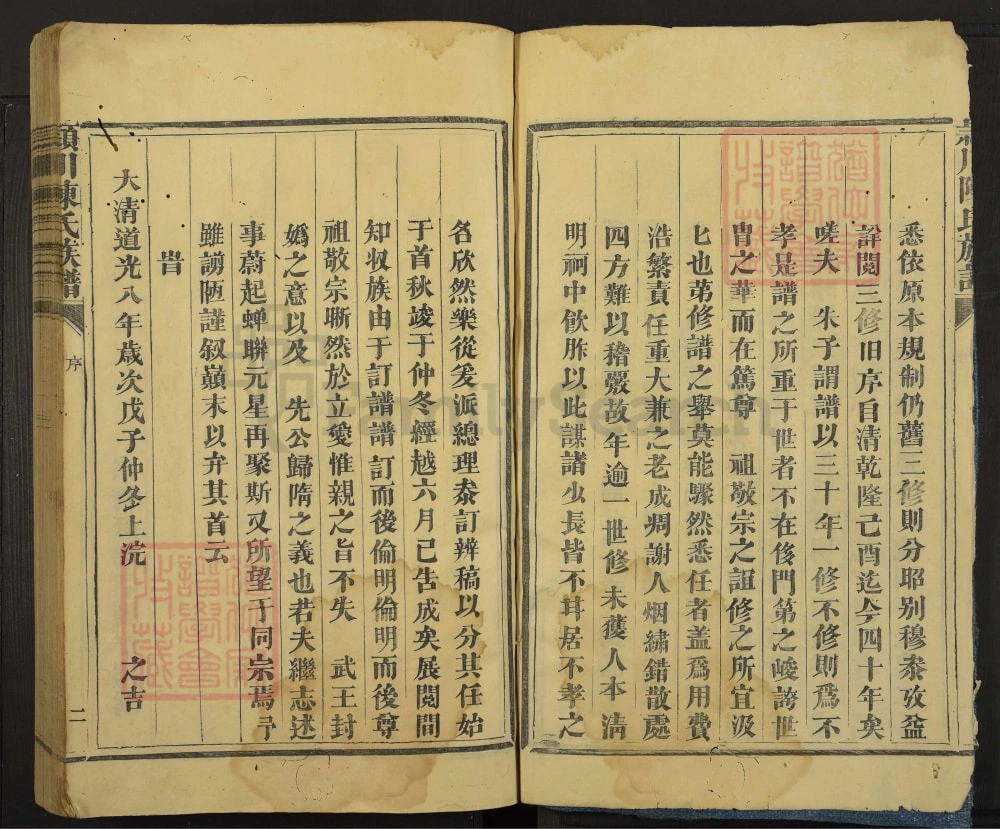 悉依原本規制仍舊三修則分昭别穆叅攷益
詳閱三修旧序自清乾隆己酉迄今四十年矣
嗟夫 朱子謂譜以三十年一修不修則爲不
孝是譜之所重于世者不在侈門第之峻誇世
胄之華而在篤尊 祖敬宗之誼修之所宜汲
匕也苐修譜之舉莫能驟然悉任者盖爲用費
浩繁責任重大兼之老成凋謝人烟繡錯散處
四方難以稽覈故年逾一世修未獲人本清
明祠中飲胙以此謀諸少長皆不耳居不孝之
名欣然樂從爰派總理叅訂辨稿以分其任始
于首秋竣于仲冬經越六月已告成矣展閱間
知収族由于訂譜譜訂而後倫明倫明而後尊
祖敬宗晰然於立愛惟親之旨不失 武王封
嬀之意以及 先公歸隋之義也若夫繼志述
事蔚起蟬聯元星再聚斯又所望于同宗焉予
雖謭陋謹叙巔末以弁其首云
旹
大清道光八年歲次戊子仲冬上浣 之吉
潁川陳氏族譜 序 二
潁川陳氏族譜
FamilySearch